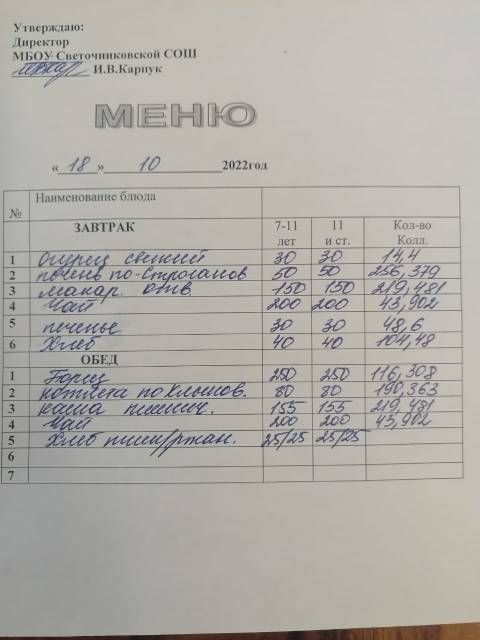 Утверждаю:
Директор
МБОУ Светочниковской СОШ
И.В.Карпук
МЕНЮ
« 18 » 10 2022год
№ Наименование блюда
ЗАВТРАК 7-11 лет 11 и ст. Кол-во Колл.
1 Огурец свежий 30 30 14,4
2 печень по-строганов 50 50 256,379
3 макар. отв. 150 150 219,481
4 Чай 200 200 43,902
5 печенье 30 30 48,6
6 Хлеб 40 40 104,48
ОБЕД
1 Борщ 250 250 116,308
2 котлета по 80 80 190,363
3 каша пшенич. 155 155 219,481
4 Чай 200 200 43,902
5 Хлеб пшен/ржан. 25/25 25/25
6
7